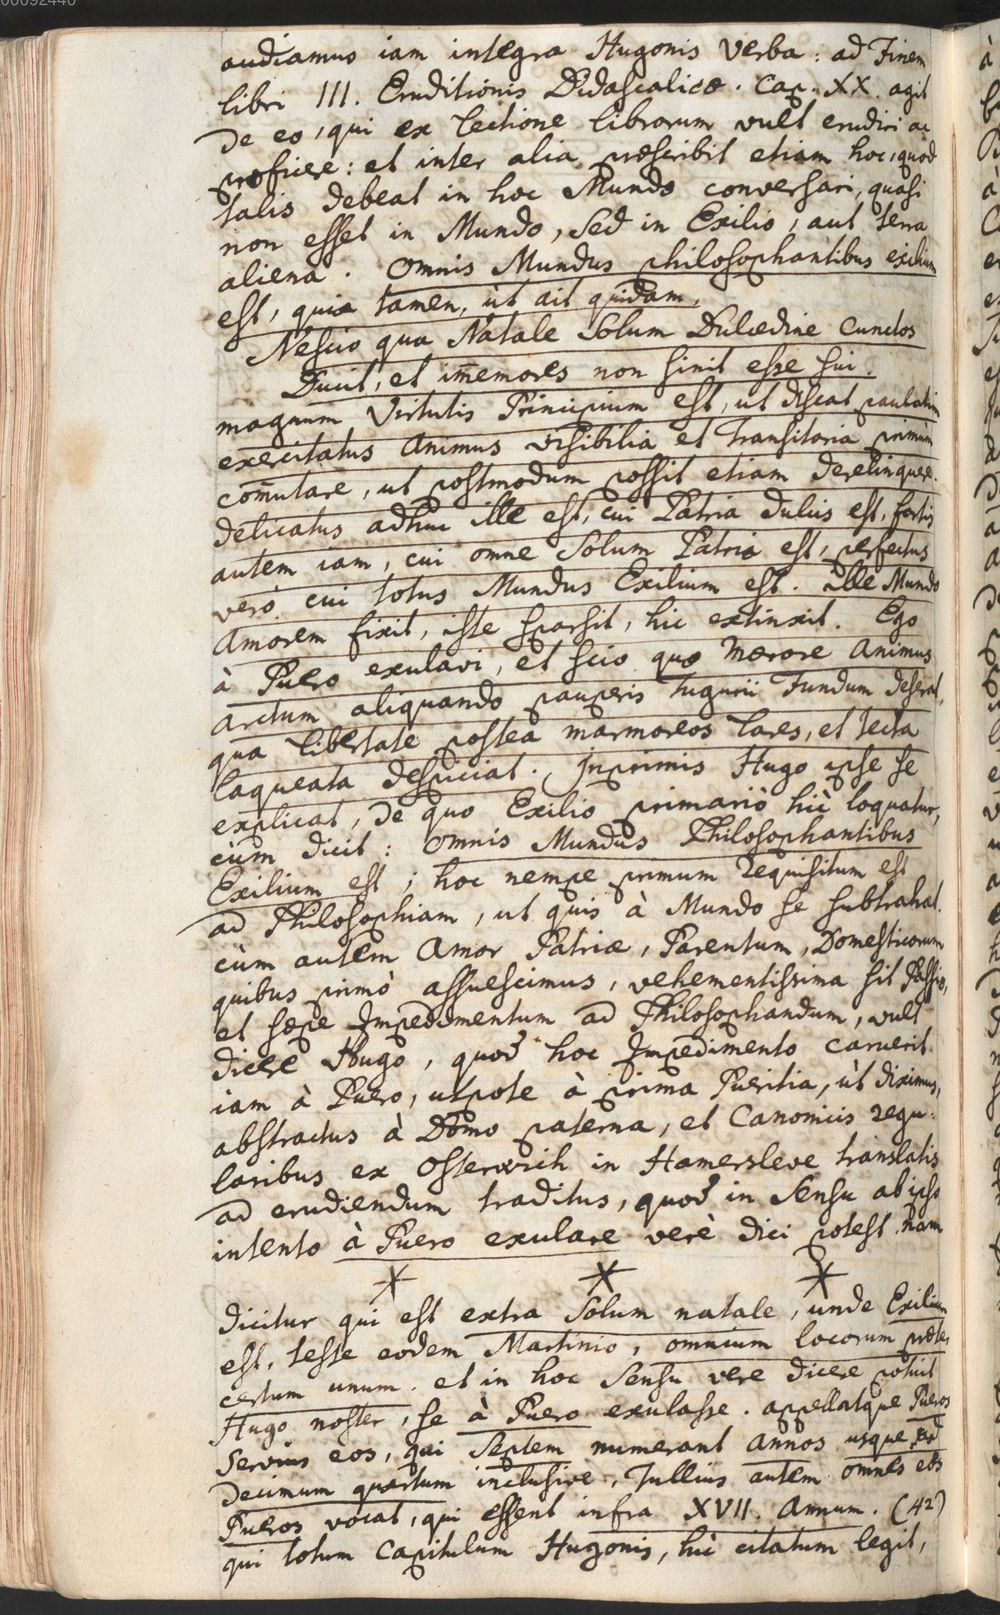 00092440
audiamus iam integra Hugonis verba: ad Finem
libri III. Eruditionis Didascalicæ. Cap. XX. agit
de eo, qui ex lectione librorum vult erudiri ac
proficere: et inter alia præscribit etiam hoc, quod
talis debeat in hoc Mundo conversari, quasi
non esset in Mundo, sed in Exilio, aut terra
aliena. Omnis Mundus philosophantibus exilium
est, quia tamen, ùt ait quidam,
Nescio qua Natale Solum Dulcedine cunctos
Ducit, et im̄emores non sinit esse sui.
magnum Virtutis Principium est, ut discat paulatim
exercitatus Animus visibilia et transitoria primum
com̄utare, ut postmodum possit etiam derelinquere.
delicatus adhuc ille est, cui Patria dulcis est, fortis
autem iam, cui omne Solum Patria est, perfectus
verò cui totus Mundus Exilium est. Ille Mundo
Amorem fixit, iste sparsit, hic extinxit. Ego
à Puero exulavi, et scio quo Mærore Animus
arctum aliquando pauperis Tugurii Fundum deserat,
qua libertate postea marmoreos lares, et tecta
laqueata despiciat. Inprimis Hugo ipse se
explicat, de quo Exilio primariò hìc loquatur,
cùm dicit: Omnis Mundus Philosophantibus
Exilium est; hoc nempe primum requisitum est
ad Philosophiam, ut quis à Mundo se subtrahat.
cùm autem Amor Patriæ, Parentum, Domesticorum
quibus primò assuescimus, vehementissima sit Passio,
et sæpe Impedimentum ad Philosophandum, vult
dicere Hugo, quod hoc Impedimento caruerit
iam à Puero, utpote à prima Pueritia, ùt diximus,
abstractus à Domo paterna, et Canonicis regu:
laribus ex Osterwich in Hamersleve translatis
ad erudiendum traditus, quod in Sensu ab ipso
intento à Puero exulare verè dici potest. nam
* * *
dicitur qui est extra Solum natale, unde Exilium
est, teste eodem Martinio, omnium locorum præter
certum unum. et in hoc Sensu vere dicere potuit
Hugo noster, se à Puero exulasse. appellatque Pueros
Servius eos, qui Septem numerant Annos usque ad
decimum quartum inclusive, Tullius autem omnes eos
Pueros vocat, qui essent infra XVII. Annum. (42)
qui totum Capitulum Hugonis, hìc citatum legit,